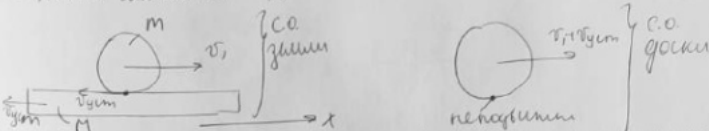 m
v₁
С.О.
земли
vуст
vуст
M
x
v₁+vуст
С.О.
доски
неподвижн